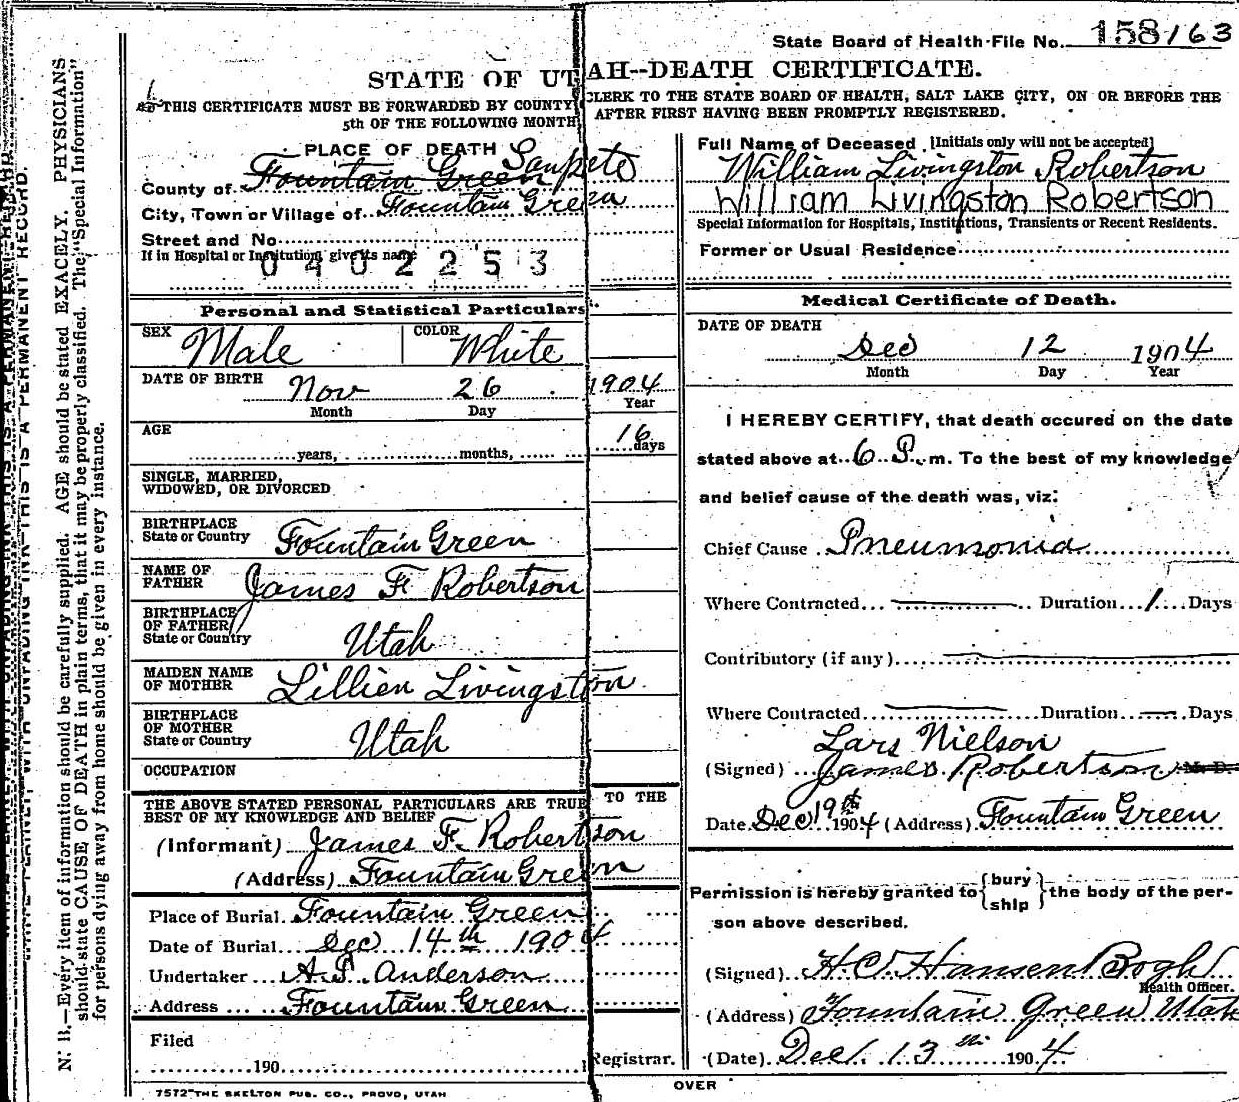 State Board of Health-File No. 158163
STATE OF UTAH--DEATH CERTIFICATE.
THIS CERTIFICATE MUST BE FORWARDED BY COUNTY CLERK TO THE STATE BOARD OF HEALTH, SALT LAKE CITY, ON OR BEFORE THE
5th OF THE FOLLOWING MONTH AFTER FIRST HAVING BEEN PROMPTLY REGISTERED.
N. B.—Every item of information should be carefully supplied. AGE should be stated EXACELY. PHYSICIANS
should state CAUSE OF DEATH in plain terms, that it may be properly classified. The "Special Information"
for persons dying away from home should be given in every instance.
PLACE OF DEATH
County of Fountain Green Sanpete
City, Town or Village of Fountain Green
Street and No
If in Hospital or Institution, give its name
0402253
Personal and Statistical Particulars.
SEX Male COLOR White
DATE OF BIRTH Nov 26 1904
Month Day Year
AGE years, months, 16 days
SINGLE, MARRIED,
WIDOWED, OR DIVORCED
BIRTHPLACE
State or Country Fountain Green
NAME OF
FATHER James F. Robertson
BIRTHPLACE
OF FATHER
State or Country Utah
MAIDEN NAME
OF MOTHER Lillien Livingston
BIRTHPLACE
OF MOTHER
State or Country Utah
OCCUPATION
THE ABOVE STATED PERSONAL PARTICULARS ARE TRUE TO THE
BEST OF MY KNOWLEDGE AND BELIEF
(Informant) James F. Robertson
(Address) Fountain Green
Place of Burial Fountain Green
Date of Burial Dec 14th 1904
Undertaker A. P. Anderson
Address Fountain Green
Filed
190 Registrar.
7572-THE SKELTON PUB. CO., PROVO, UTAH
Full Name of Deceased [Initials only will not be accepted]
William Livingston Robertson
William Livingston Robertson
Special Information for Hospitals, Institutions, Transients or Recent Residents.
Former or Usual Residence
Medical Certificate of Death.
DATE OF DEATH
Dec 12 1904
Month Day Year
I HEREBY CERTIFY, that death occured on the date
stated above at 6 P. m. To the best of my knowledge
and belief cause of the death was, viz:
Chief Cause Pneumonia
Where Contracted Duration 1 Days
Contributory (if any)
Where Contracted Duration Days
Lars Nielson
(Signed) James Robertson M. D.
Date Dec 19th 1904 (Address) Fountain Green
Permission is hereby granted to {bury
ship} the body of the per-
son above described.
(Signed) H. C. Hansen Bogh
Health Officer.
(Address) Fountain Green Utah
(Date) Dec 13th 1904
OVER